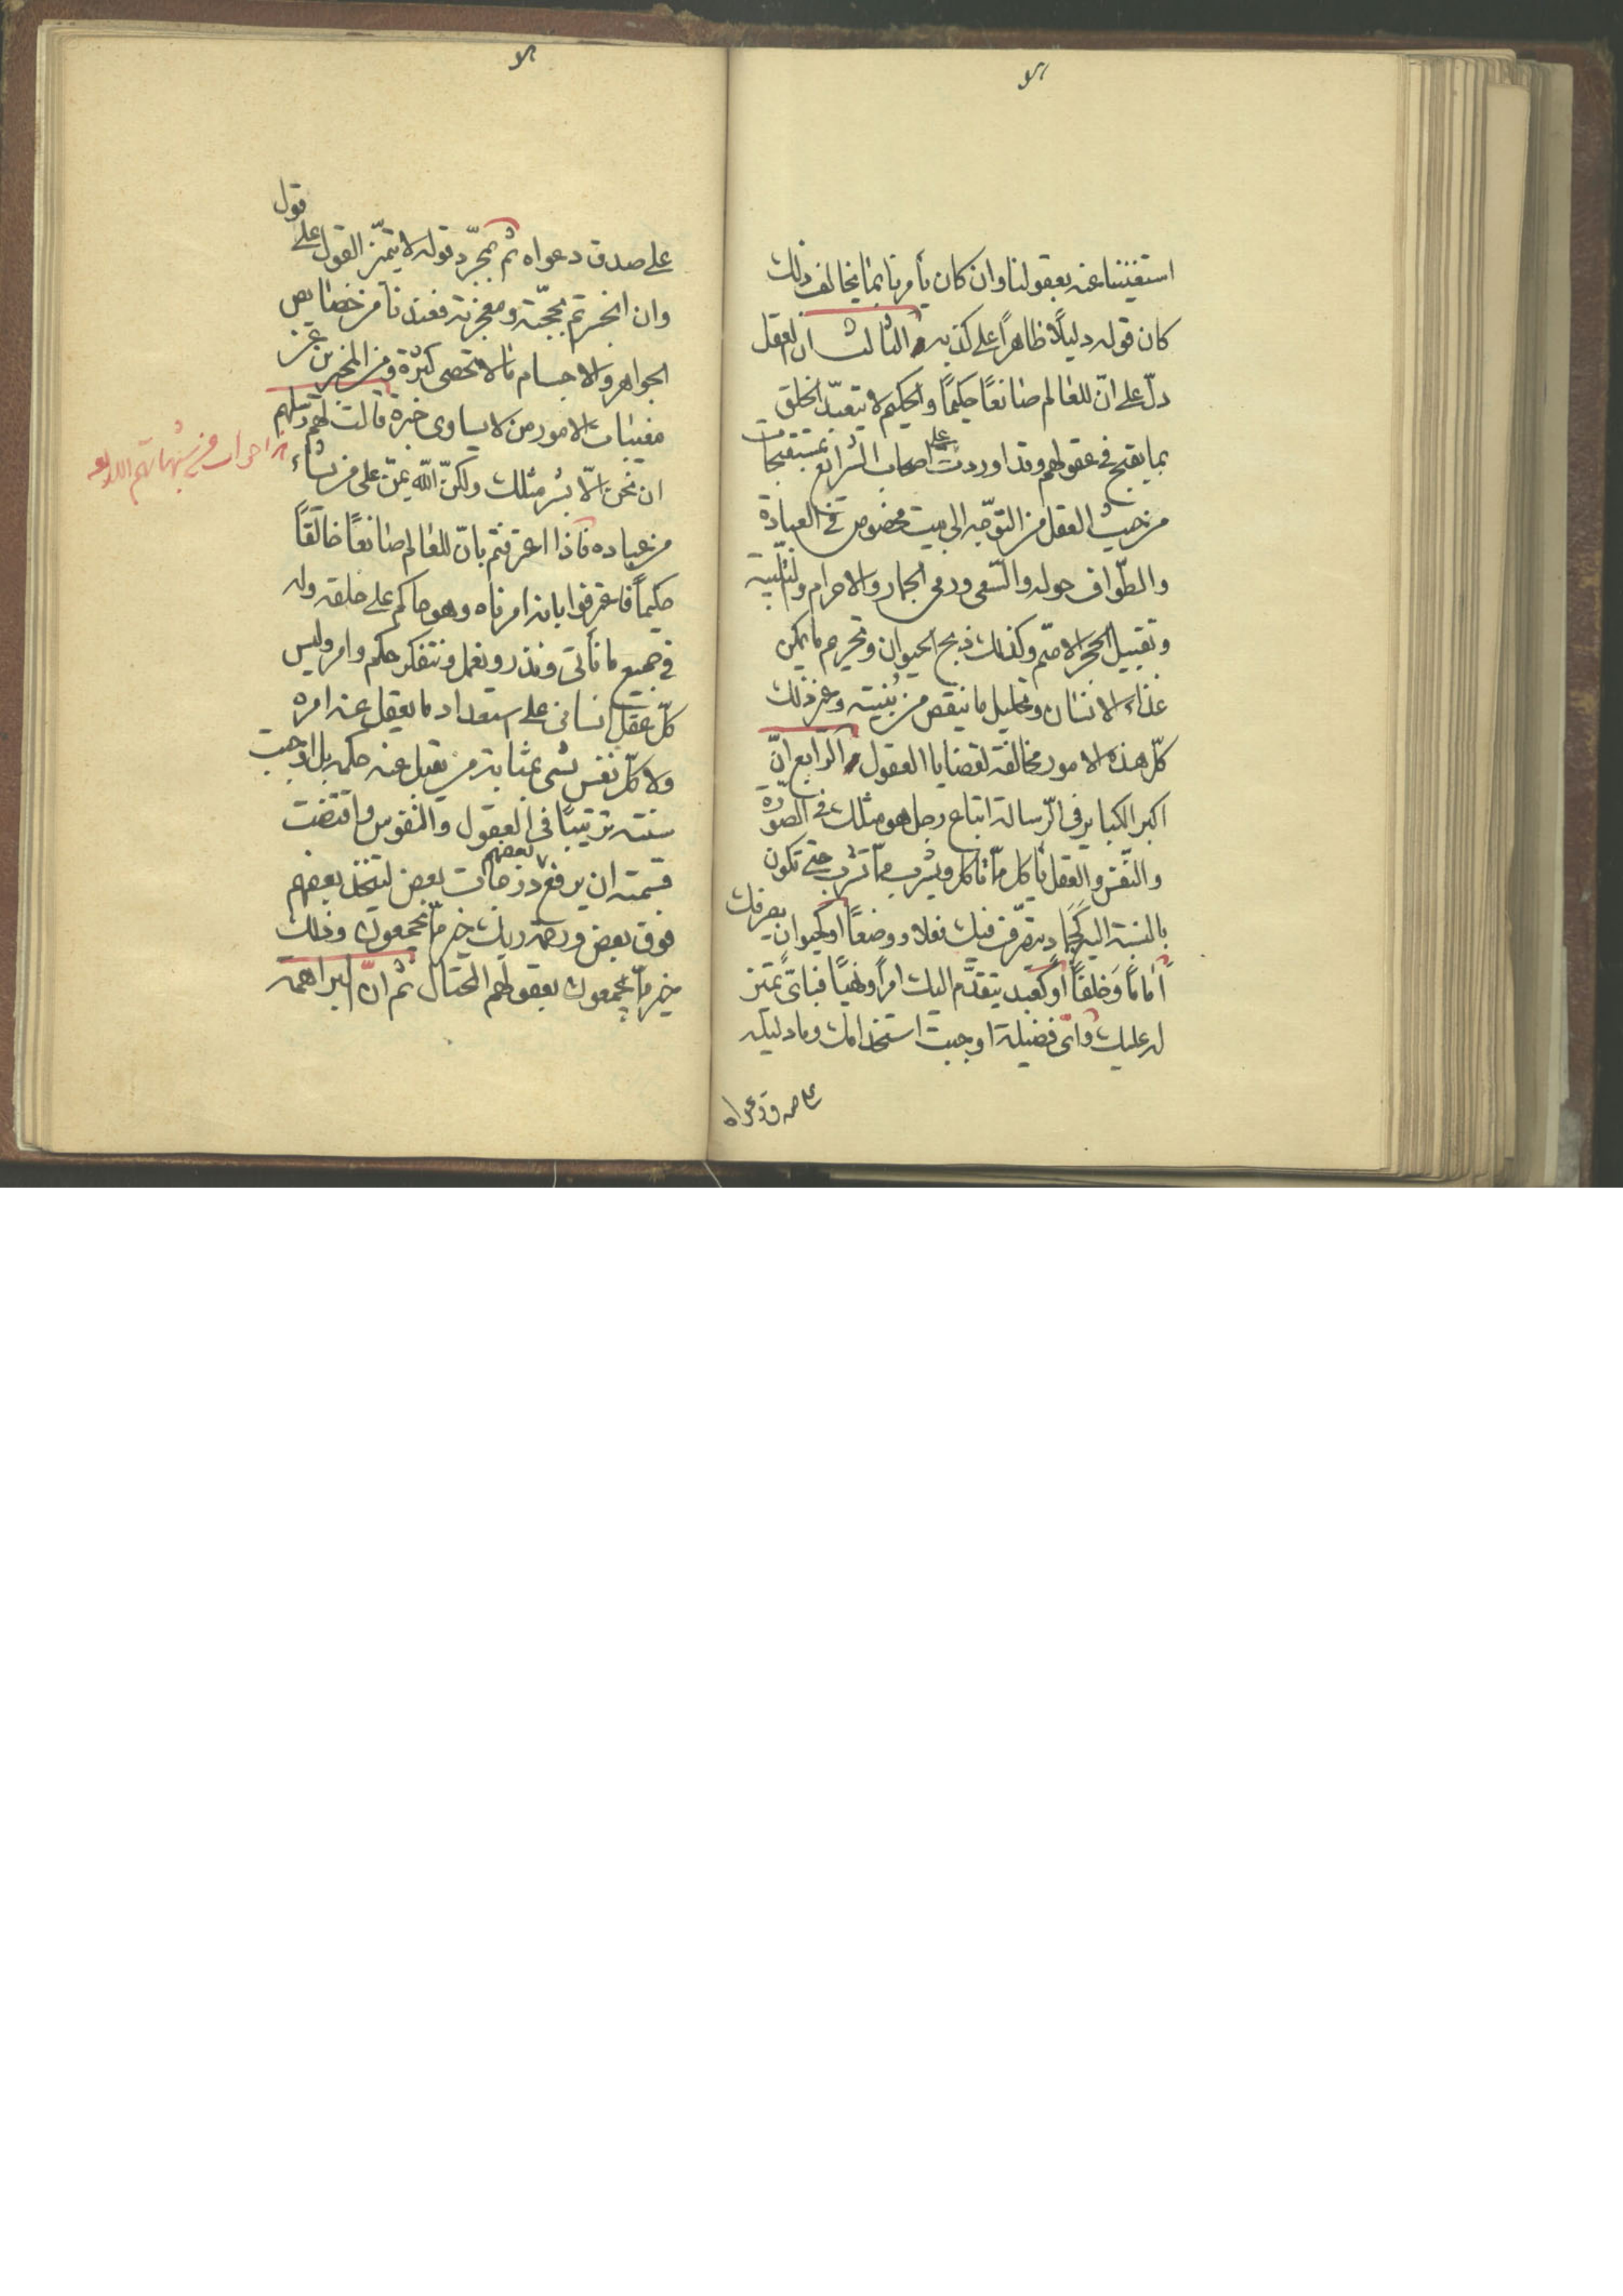 استغنينا عنه بعقولنا وان كان يأمرنا بما يخالف ذلك
كان قوله دليلًا ظاهرًا على كذبه الثالث ان العقل
دلّ على انّ للعالم صانعًا حكيمًا والحكيم لا يتعبّد الخلق
بما يقبح فى عقولهم وقد اوردت على اصحاب الشرايع بمستقبحات
من حيث العقل من التوجّه الى بيت مخصوص فى العبادة
والطّواف حوله والسّعى ورمى الجمار والاحرام والتلبية
وتقبيل الحجر الاصّم وكذلك ذبح الحيوان وتحريم ما يمكن
غذاء الانسان وتحليل ما ينقص من بُنيته وغير ذلك
كلّ هذه الامور مخالفة لقضايا العقول الرّابع انّ
اكبر الكباير فى الرّسالة اتباع رجل هو مثلك فى الصّورة
والنّفس والعقل يأكل ممّا تأكل ويشرب ممّا تشرب حتى تكون
بالنسبة اليه كَجَماد يتصرّف فيك نعلا ووضعاً او كحيوان يصرفك
أمامًا وَخلفاً او كعبد يتقدّم اليك امرًا ونهيًا فبأىّ تميّز
له عليك وأىّ فضيلة اوجبت استخدامك وما دليله
على صدق دعواه
على صدق دعواه ثم بمجرّد قوله لا يتميّز القول على قول
وان انخبرتم بحجّته ومعجزته فعندنا من خصايص
الجواهر والاجسام ما لا تحصى كثرة ومن المخبرين عن
مغيبات الامور من لا يساوى خبره قالت لهم رسلهم
ان نحن الّا بشر مثلك ولكنّ اللّه يمنّ على من يشاء
من عباده فاذا اعترفتم بانّ للعالم صانعًا خالقًا
حكيماً فاعترفوا بانه امر ناه وهو حاكم على خلقه وله
فى جميع ما نأتى ونذر ونعمل ونتفكر حكم وامر وليس
كلّ عقل انسانى على استعداد ما يعقل عنه امره
ولا كلّ نفس بشرى بمثابة من يقبل عنه حكمه بل اوجبت
سنته ترتيبًا فى العقول والنفوس واقتضت
قسمته ان يرفع بعضهم درجات بعض ليتخذ بعضهم
فوق بعض ورحمة ربك خير ممّا يجمعون وذلك
خير ممّا يجمعون بعقولهم المحتال ثم انّ البراهمة